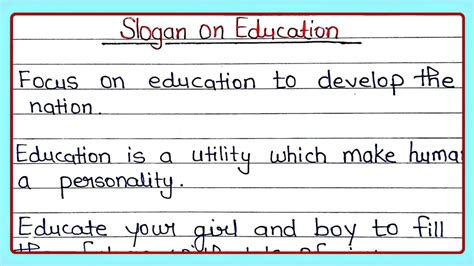 Slogan on Education
Focus on education to develop the
nation.
Education is a utility which make huma
a personality.
Educate your girl and boy to fill
the